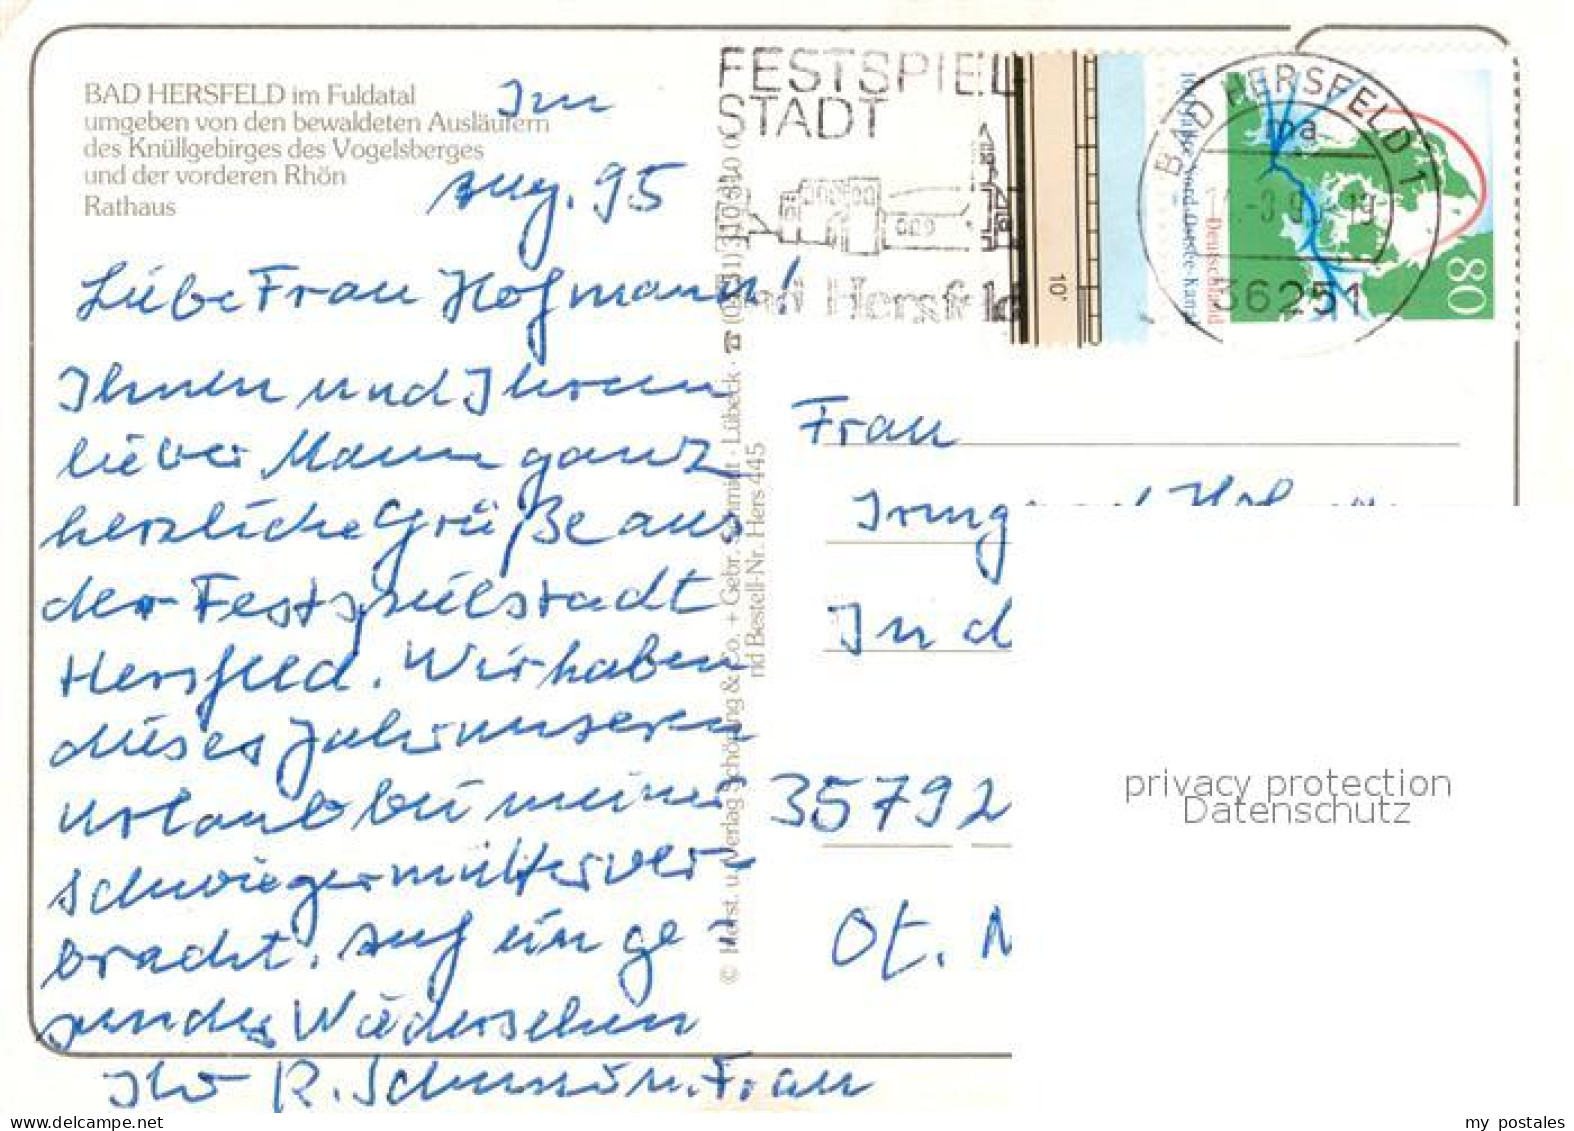 BAD HERSFELD im Fuldatal
umgeben von den bewaldeten Ausläufern
des Knüllgebirges des Vogelsberges
und der vorderen Rhön
Rathaus
Im
Aug. 95
Liebe Frau Hofmann!
Ihnen und Ihrem
lieber Mann ganz
herzliche Grüße aus
der Festspielstadt
Hersfeld. Wir haben
dieses Jahr unseren
Urlaub bei meiner
Schwiegermutter ver-
bracht. Auf ein ge-
sundes Wiedersehen
Ihr R. u. Frau
FESTSPIEL
STADT
Bad Hersfeld
10'
Deutschland
80
BAD HERSFELD 1
ma
36251
© Herst. u. Verlag Schöning & Co. + Gebr. Schmidt · Lübeck · ☎
Bestell-Nr. Hers 445
Frau
In d
35792
Ot.
privacy protection
Datenschutz
my postales